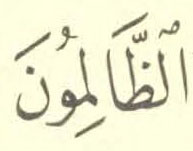 ٱلظَّالِمُونَ